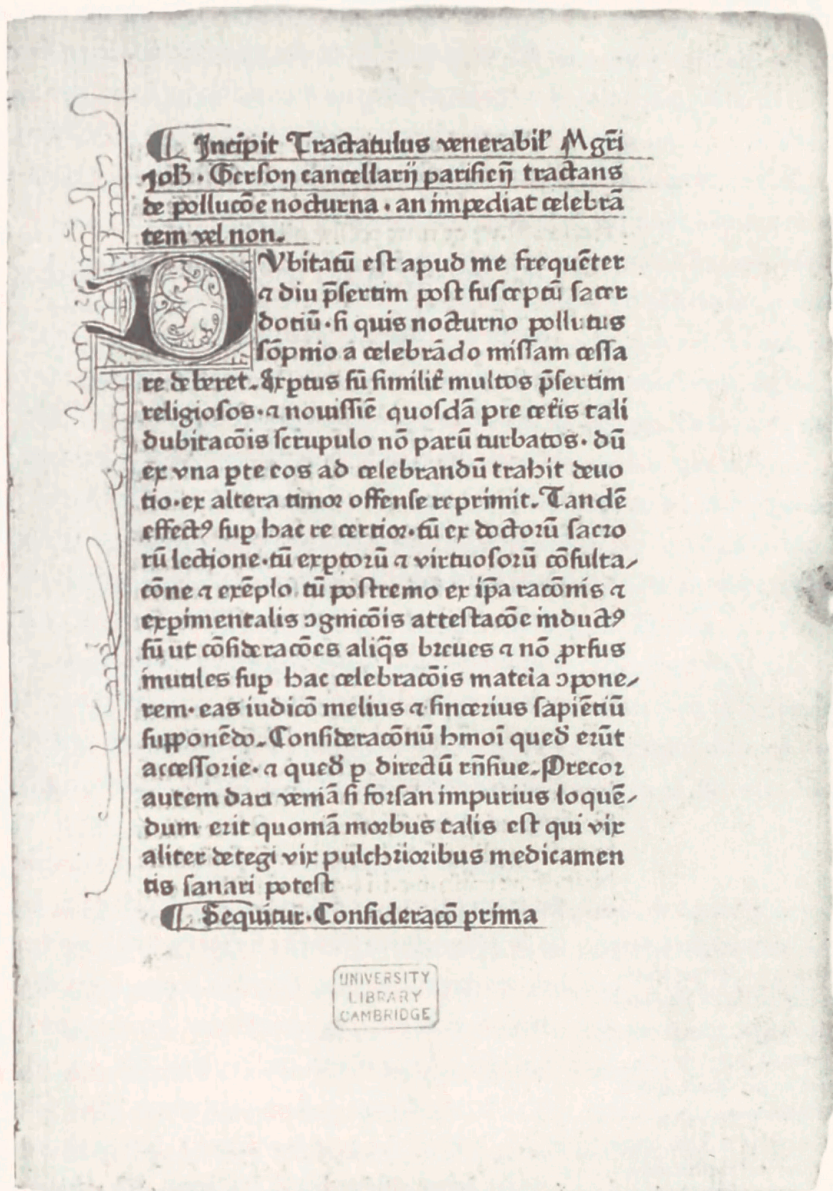 ¶ Incipit Tractatulus venerabil᷒ Mgr̄i
Joh̄ · Gerson cancellarij parisien̄ tractans
de pollucōe nocturna · an impediat celebrā
tem vel non.
DVbitatū est apud me frequēter
⁊ diu p̄sertim post susceptū sacer
dotiū · si quis nocturno pollutus
sōpnio a celebrādo missam cessa
re deberet. Exp̱tus sū similit᷒ multos p̄sertim
religiosos · ⁊ nouissīe quosdā pre cet᷒is tali
dubitacōis scrupulo nō parū turbatos · dū
ex vna p̱te eos ad celebrandū trahit deuo
tio · ex altera timor offense reprimit. Tandē
effectꝰ sup̱ hac re certior · tū ex doctorū sacro
rū lectione · tū exp̱torū ⁊ virtuosorū cōsulta⸗
cōne ⁊ exēplo · tū postremo ex ip̄a racōnis ⁊
exp̱imentalis ꝯgnicōis attestacōe inductꝰ
sū ut cōsideracōes aliq̄s breues ⁊ nō ꝓrsus
inutiles sup̱ hac celebracōis mateīa ꝯpone⸗
rem · eas iudicō melius ⁊ sincerius sapiētiū
supponēdo. Consideracōnū hmoī quedā erūt
accessorie · ⁊ quedā p̱ directū tn̄siue. Precor
autem dari veniā si forsan impurius loquē⸗
dum erit quoniā morbus talis est qui vix
aliter detegi vix pulchrioribus medicamen
tis sanari potest
¶ Sequitur · Consideracō prima
UNIVERSITY
LIBRARY
CAMBRIDGE